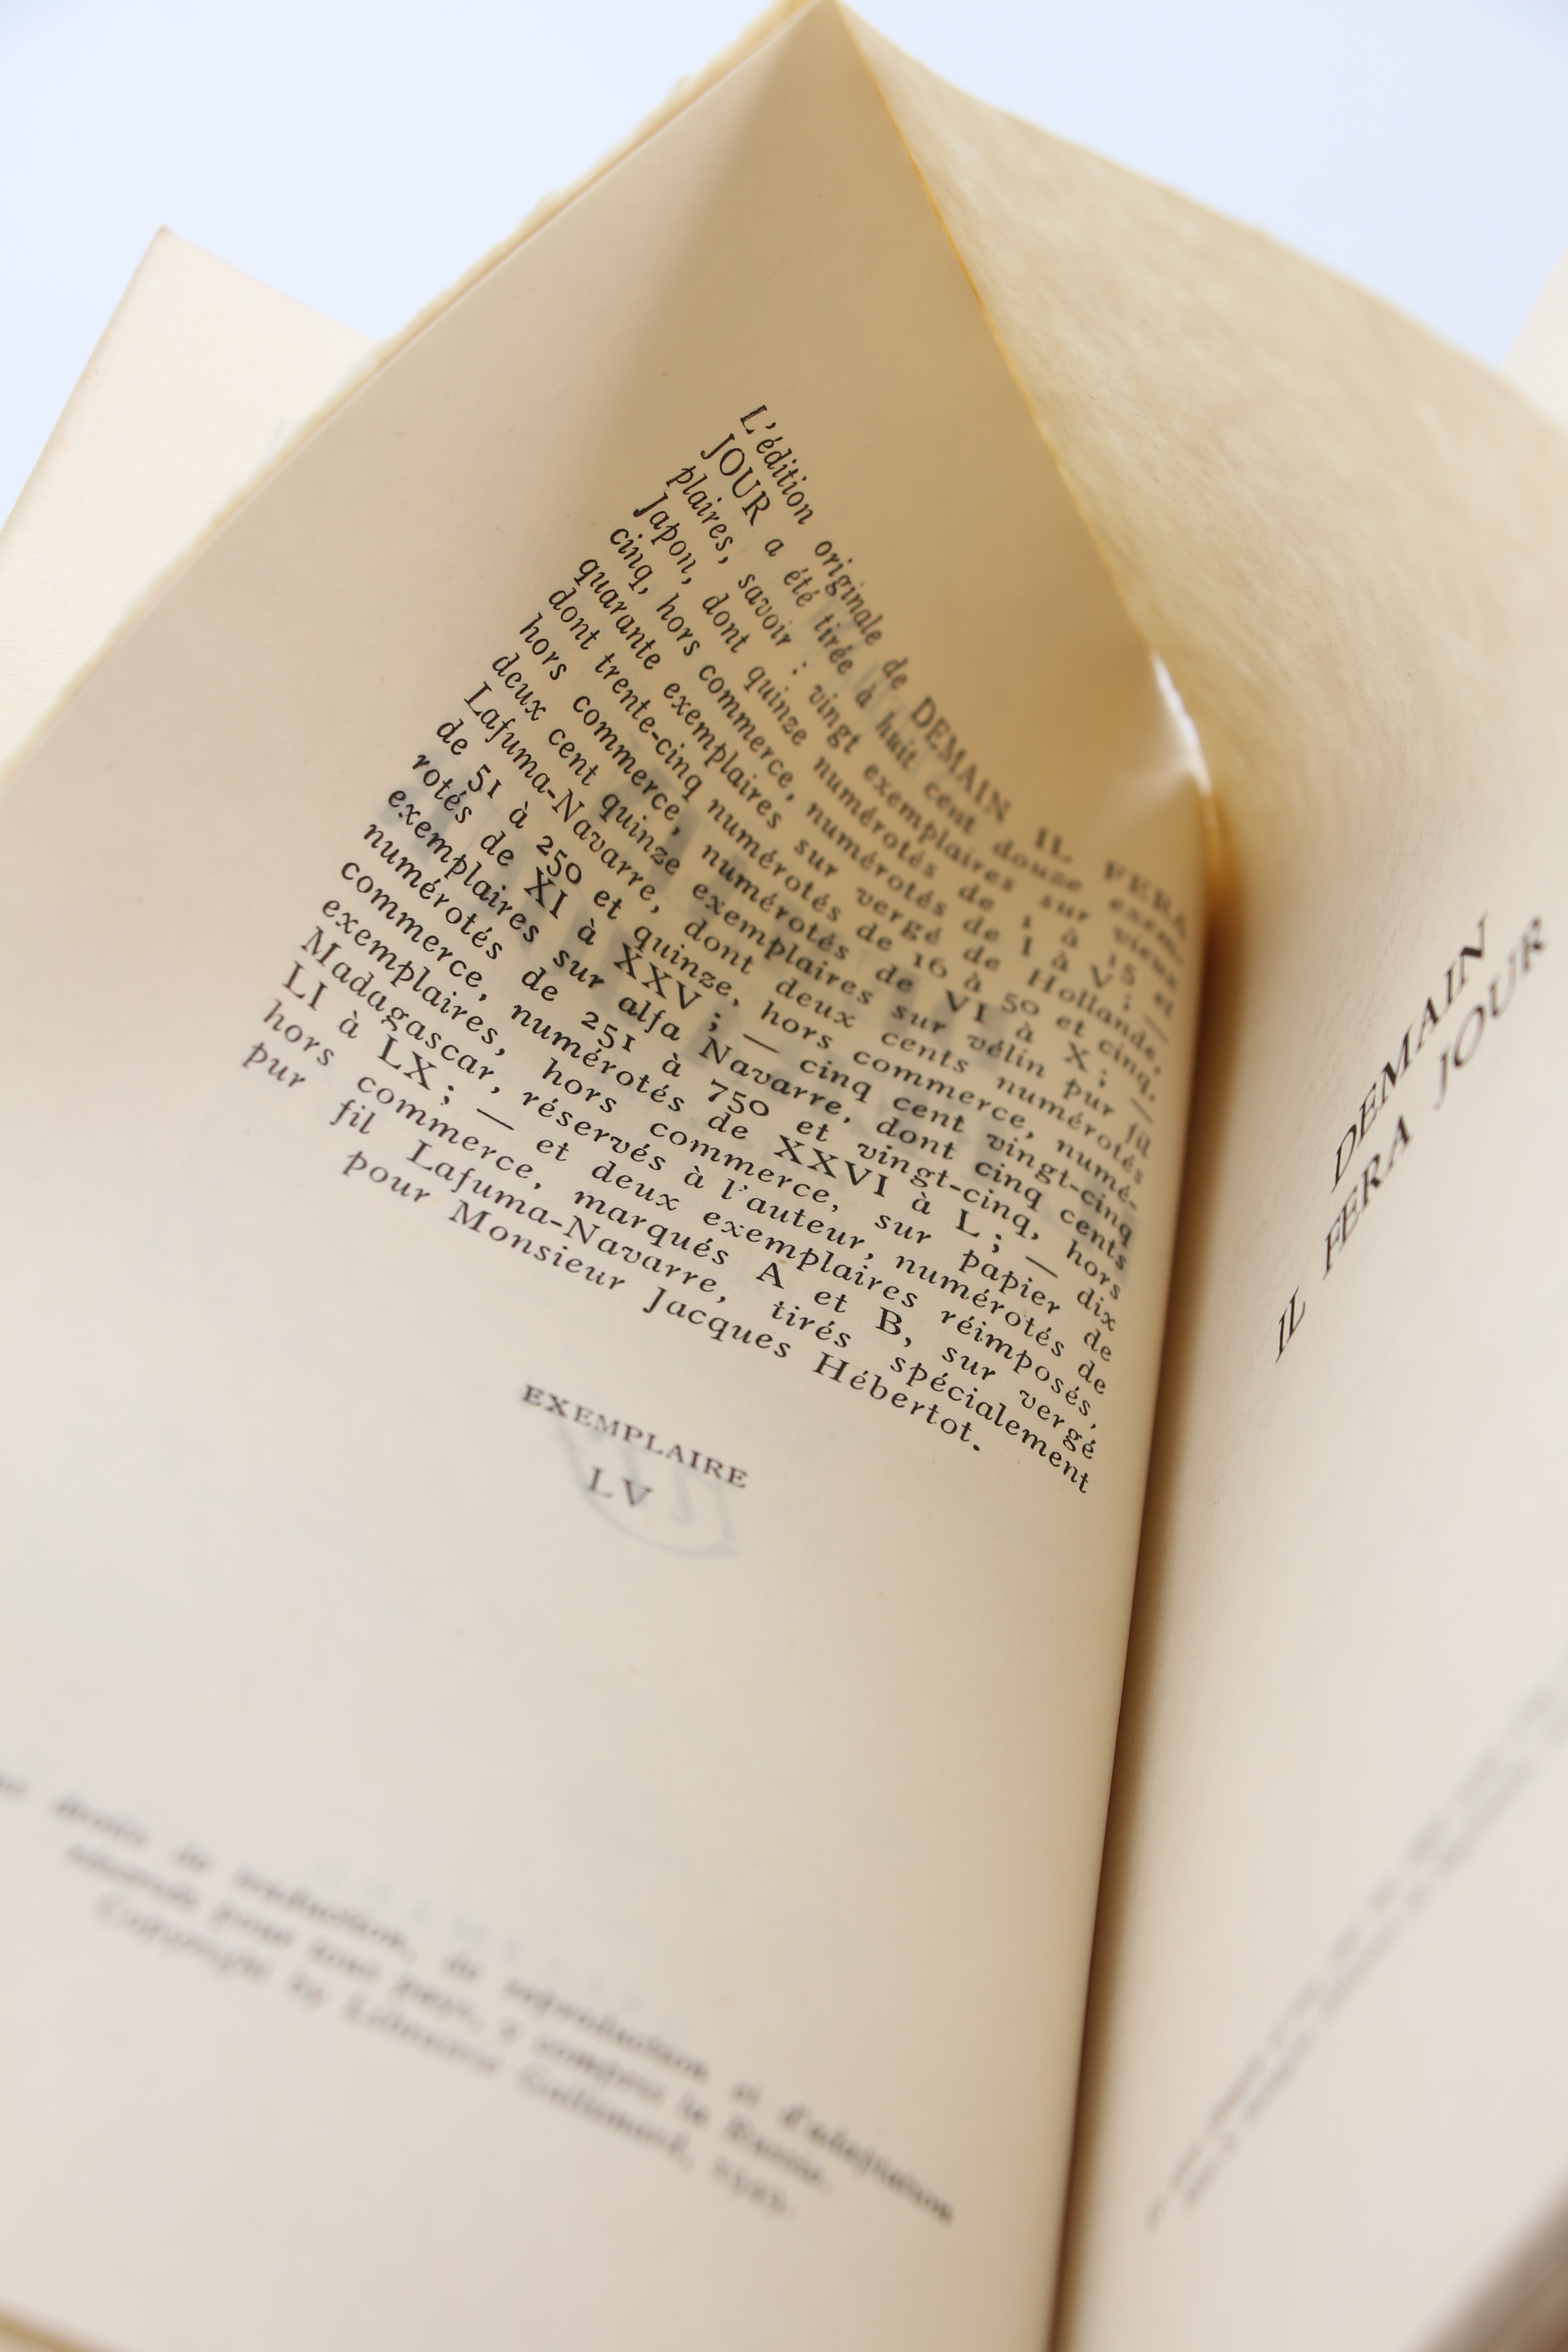 L'édition originale de DEMAIN IL FERA
JOUR a été tirée à huit cent douze exem-
plaires, savoir : vingt exemplaires sur vieux
Japon, dont quinze numérotés de 1 à 15 et
cinq, hors commerce, numérotés de I à V ; —
quarante exemplaires sur vergé de Hollande,
dont trente-cinq numérotés de 16 à 50 et cinq,
hors commerce, numérotés de VI à X ; —
deux cent quinze exemplaires sur vélin pur fil
Lafuma-Navarre, dont deux cents numérotés
de 51 à 250 et quinze, hors commerce, numé-
rotés de XI à XXV ; — cinq cent vingt-cinq
exemplaires sur alfa Navarre, dont cinq cents
numérotés de 251 à 750 et vingt-cinq, hors
commerce, numérotés de XXVI à L ; — dix
exemplaires, hors commerce, sur papier de
Madagascar, réservés à l'auteur, numérotés de
LI à LX ; — et deux exemplaires réimposés,
hors commerce, marqués A et B, sur vergé
pur fil Lafuma-Navarre, tirés spécialement
pour Monsieur Jacques Hébertot.
EXEMPLAIRE
LV
droits de traduction, de reproduction et d'adaptation
réservés pour tous pays, y compris la Russie.
Copyright by Librairie Gallimard,
DEMAIN
IL FERA JOUR